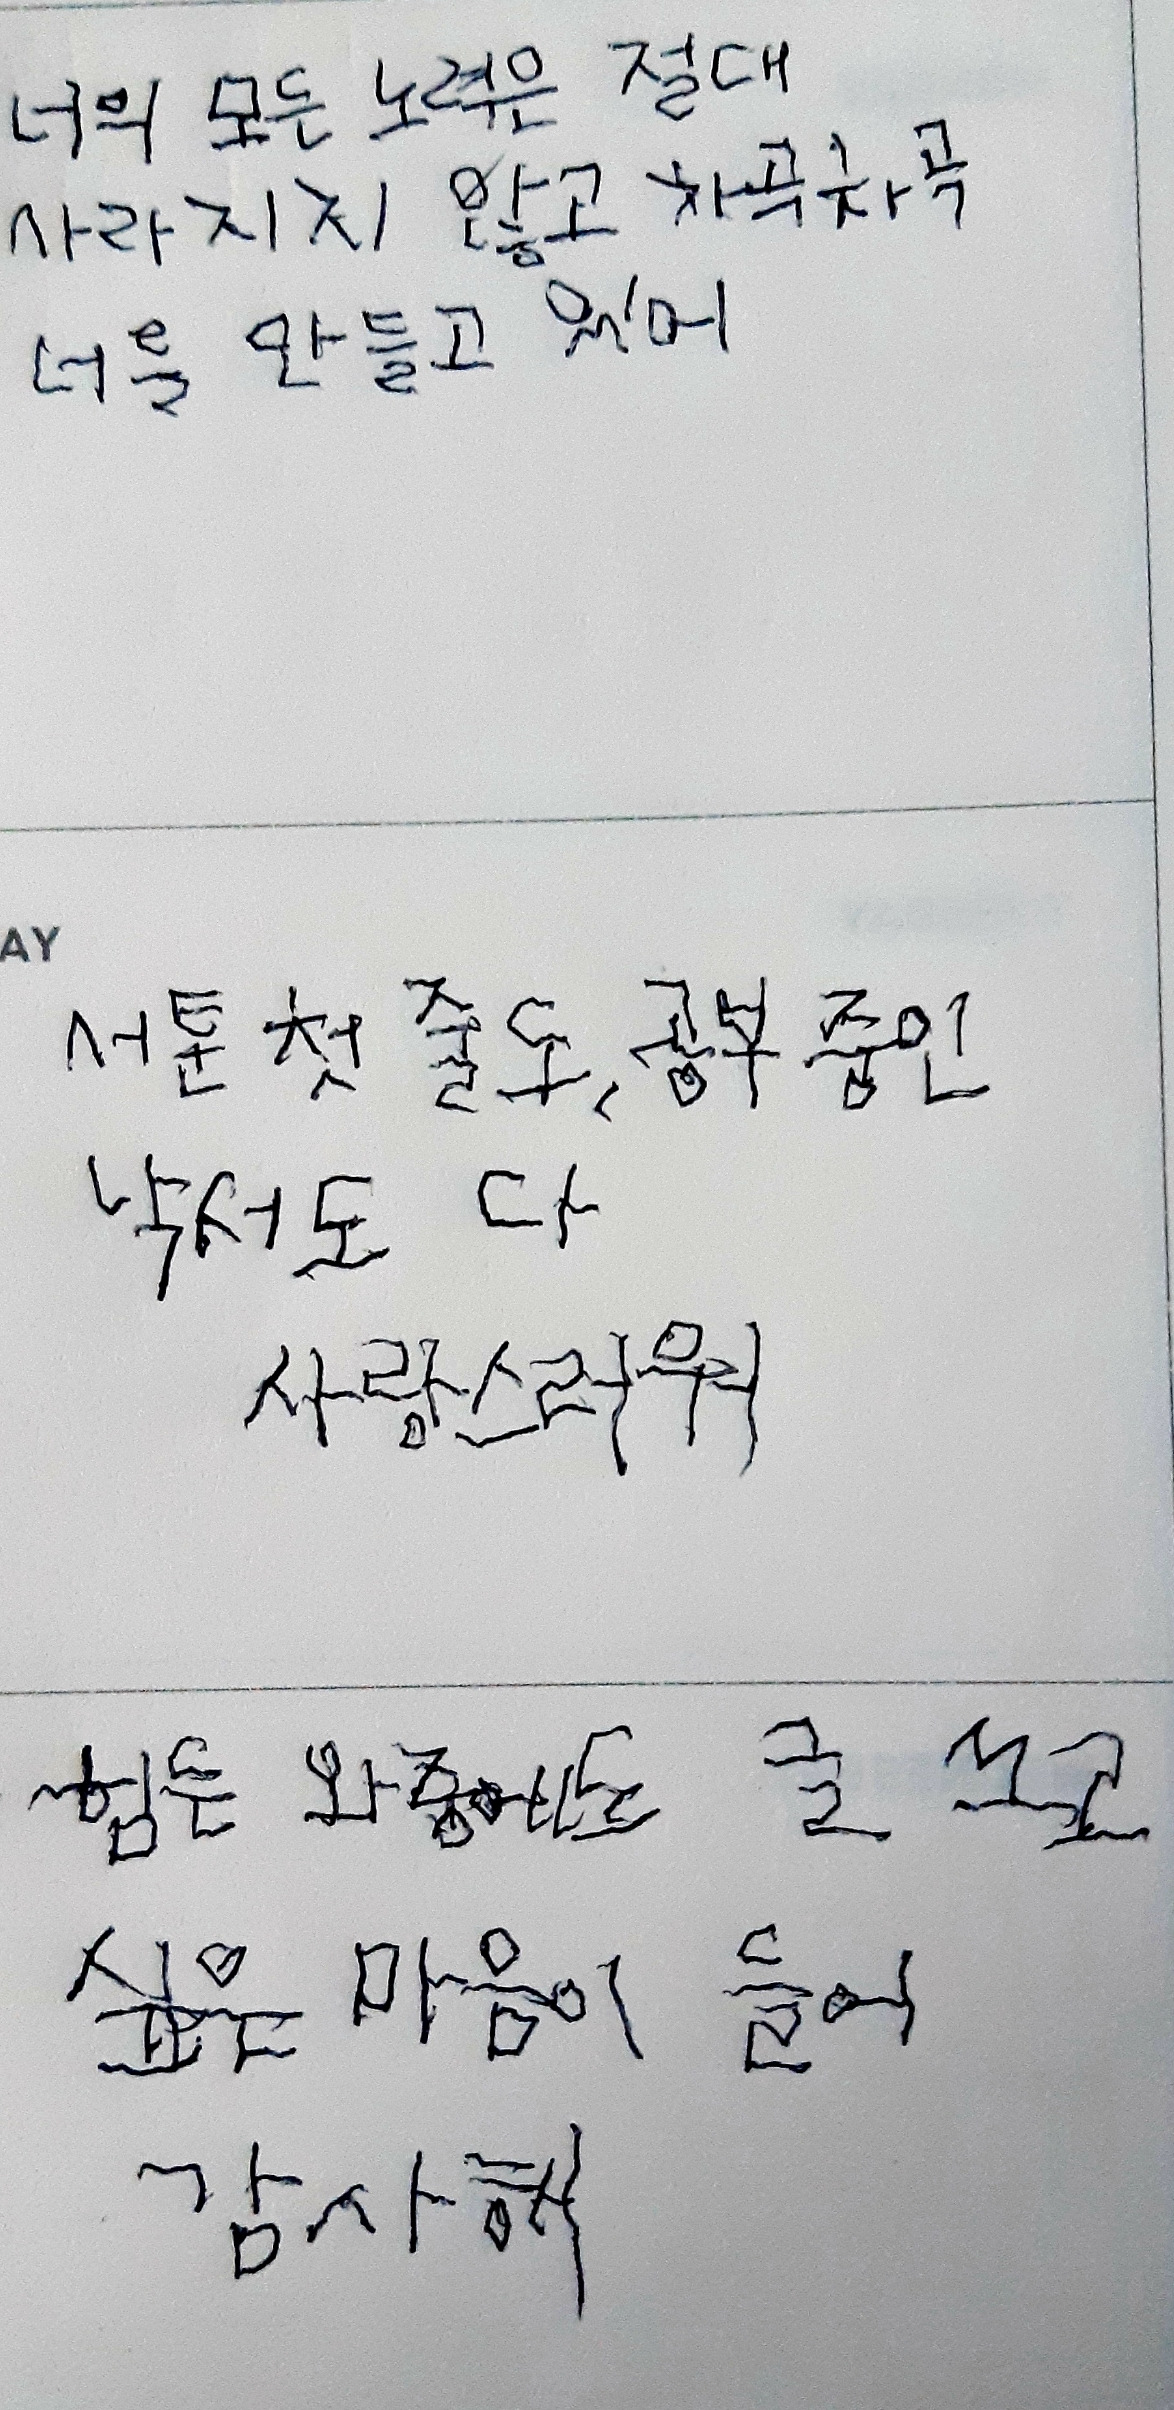 너의 모든 노력은 절대
사라지지 않고 차곡차곡
너을 만들고 있어
AY
서툰 첫 줄도, 공부 중인
낙서도 다
사랑스러워
힘든 와중에도 글 쓰고
싶은 마음이 들어
감사해